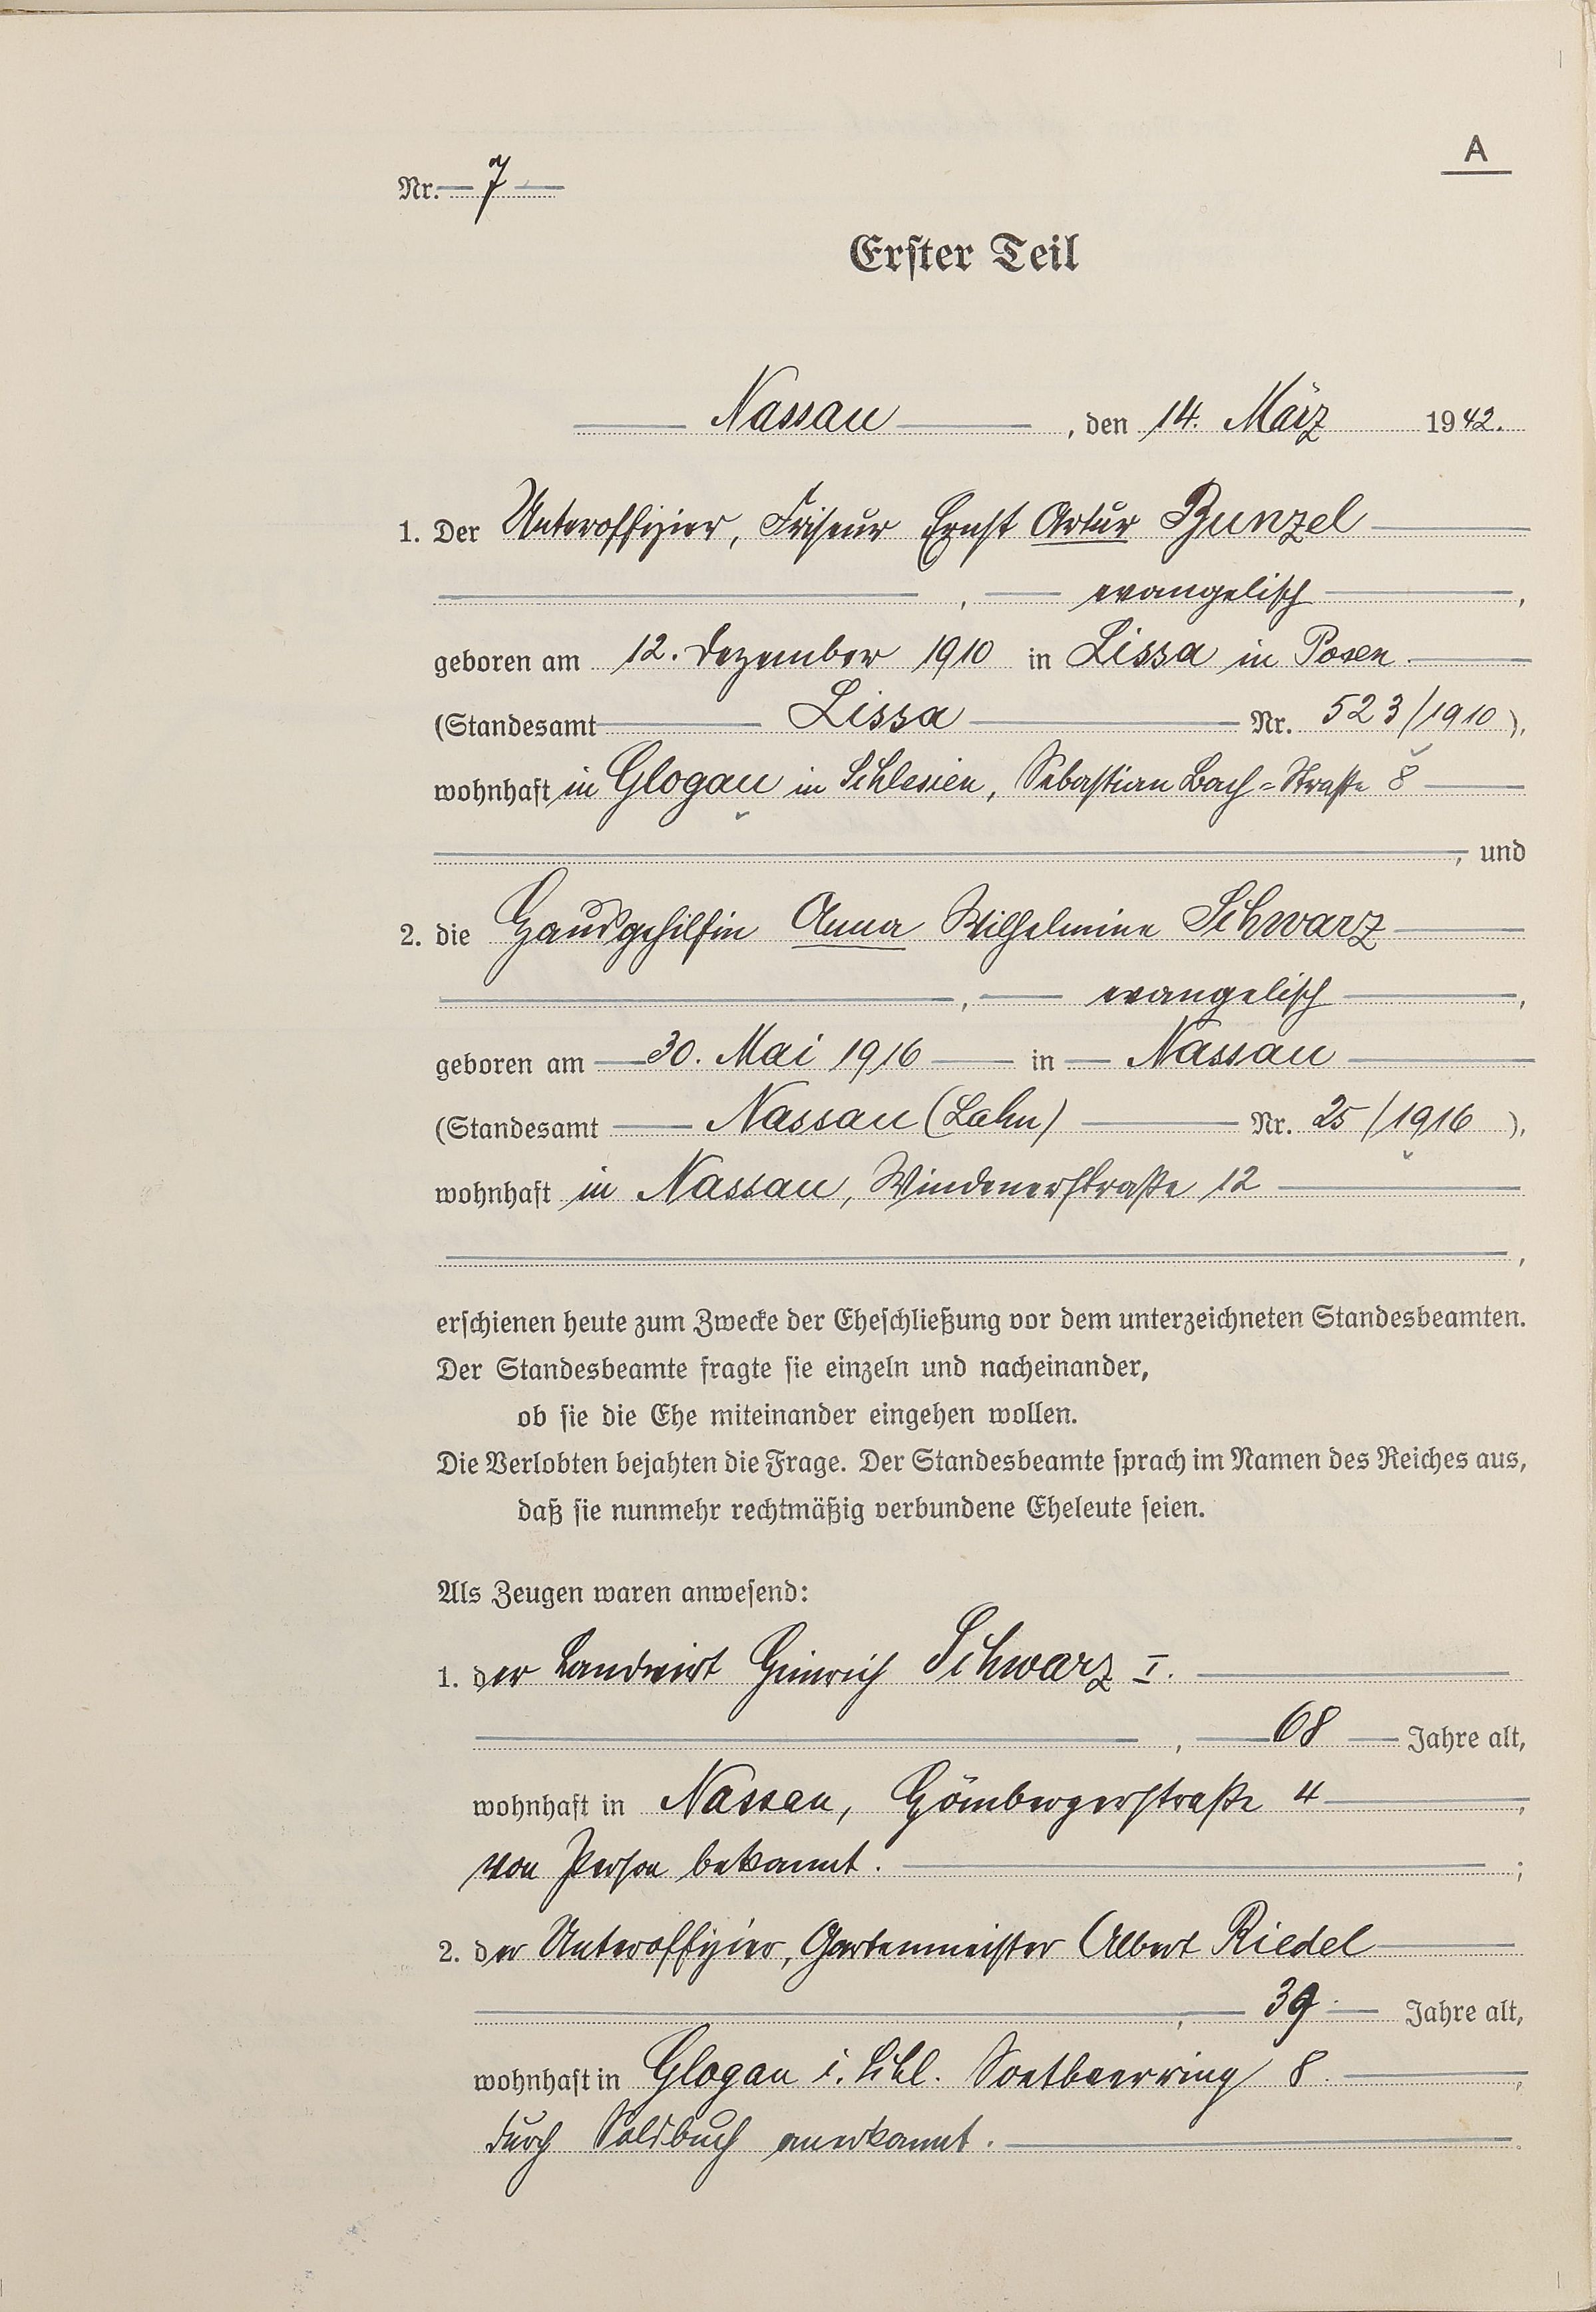 A
Nr. 7
Erster Teil
Nassau, den 14. März 1942.
1. Der Unteroffizier, Friseur Ernst Artur Bunzel
, evangelisch,
geboren am 12. Dezember 1910 in Lissa in Posen
(Standesamt Lissa Nr. 523/1910),
wohnhaft in Glogau in Schlesien, Sebastian Bach-Straße 8
, und
2. die Hausgehilfin Anna Wilhelmine Schwarz
, evangelisch,
geboren am 30. Mai 1916 in Nassau
(Standesamt Nassau (Lahn) Nr. 25/1916),
wohnhaft in Nassau, Windenerstraße 12
,
erschienen heute zum Zwecke der Eheschließung vor dem unterzeichneten Standesbeamten.
Der Standesbeamte fragte sie einzeln und nacheinander,
ob sie die Ehe miteinander eingehen wollen.
Die Verlobten bejahten die Frage. Der Standesbeamte sprach im Namen des Reiches aus,
daß sie nunmehr rechtmäßig verbundene Eheleute seien.
Als Zeugen waren anwesend:
1. der Landwirt Heinrich Schwarz I.
, 68 Jahre alt,
wohnhaft in Nassau, Hömbergerstraße 4,
von Person bekannt.;
2. der Unteroffizier, Gartenmeister Albert Riedel
, 39 Jahre alt,
wohnhaft in Glogau i. Schl. Soetbeerring 8.,
durch Soldbuch anerkannt.